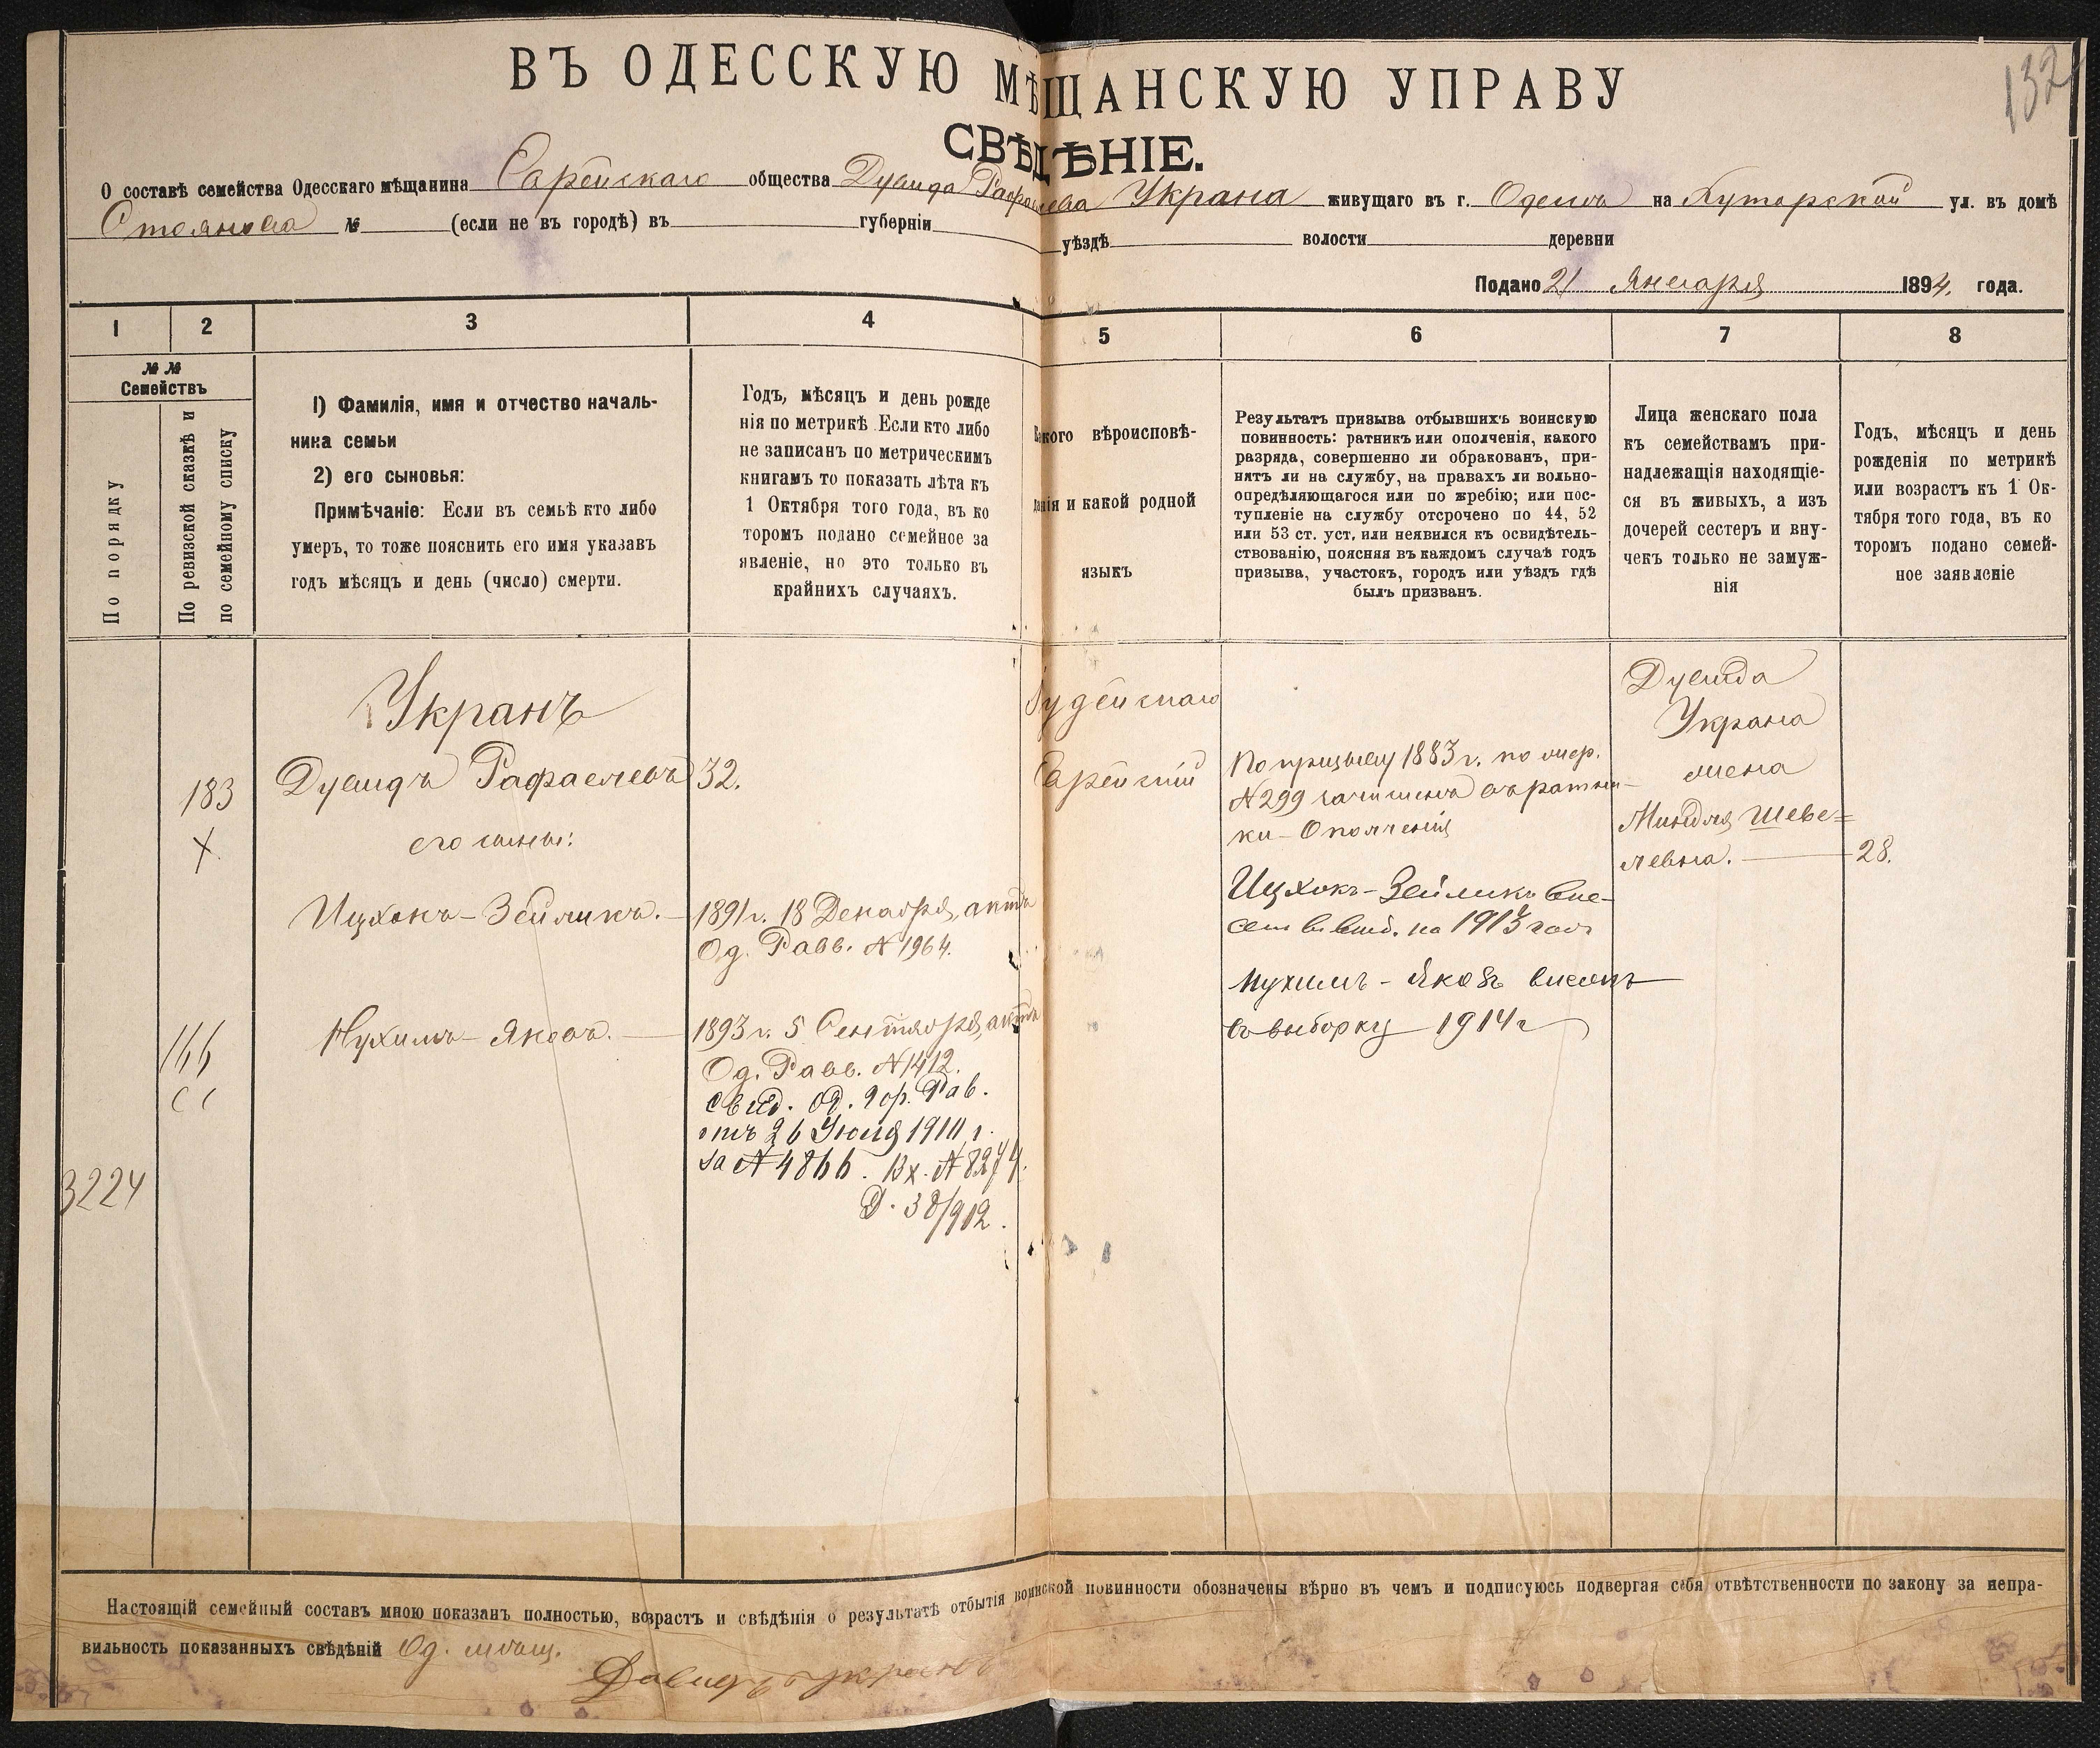 132
ВЪ ОДЕССКУЮ МѢЩАНСКУЮ УПРАВУ
СВѢДѢНІЕ.
О составѣ семейства Одесскаго мѣщанина Еврейскаго общества Дувида Рафаилева Украна живущаго въ г. Одессѣ на Хуторской ул. въ домѣ
Стоянова № (если не въ городѣ) въ губерніи уѣздѣ волости деревни
Подано 21 Января 1894. года.
1 2 3 4 5 6 7 8
№ №
Семействъ
По порядку
По ревизской сказкѣ и
по семейному списку
1) Фамилія, имя и отчество началь-
ника семьи
2) его сыновья:
Примѣчаніе: Если въ семьѣ кто либо
умеръ, то тоже пояснить его имя указавъ
годъ мѣсяцъ и день (число) смерти.
Годъ, мѣсяцъ и день рожде
нія по метрикѣ Если кто либо
не записанъ по метрическимъ
книгамъ то показать лѣта къ
1 Октября того года, въ ко
торомъ подано семейное за
явленіе, но это только въ
крайнихъ случаяхъ.
Какого вѣроисповѣ-
данія и какой родной
языкъ
Результатъ призыва отбывшихъ воинскую
повинность: ратникъ или ополченія, какого
разряда, совершенно ли обракованъ, при-
нятъ ли на службу, на правахъ ли вольно-
опредѣляющагося или по жребію; или пос-
тупленіе на службу отсрочено по 44, 52
или 53 ст. уст. или неявился къ освидѣтель-
ствованію, поясняя въ каждомъ случаѣ годъ
призыва, участокъ, городъ или уѣздъ гдѣ
былъ призванъ.
Лица женскаго пола
къ семействамъ при-
надлежащія находящіе-
ся въ живыхъ, а изъ
дочерей сестеръ и вну-
чекъ только не замуж-
нія
Годъ, мѣсяцъ и день
рожденія по метрикѣ
или возрастъ къ 1 Ок-
тября того года, въ ко
торомъ подано семей-
ное заявленіе
Укранъ
183 Дувидъ Рафаелевъ 32.
X
его сыновья:
Ицхокъ-Зейликъ. 1891 г. 18 Декабря, актъ
Од. Равв. № 1964.
Нухимъ-Яковъ. 1893 г. 5 Сентября, актъ
Од. Равв. № 1412.
Свид. Од. Гор. Рав.
отъ 26 Юня 1911 г.
за № 4866. Вх. № 8274.
Д. 38/912.
166
3224
Іудейскаго
Еврейскій
По призыву 1883 г. по жер.
№ 299 зачисленъ въ ратни-
ки Ополченія
Ицхокъ-Зейликъ вне-
сенъ на 1913 годъ
Нухимъ-Яковъ внесенъ
въ выборку 1914 г
Дувида
Украна
жена
Миндля Шеве=
левна. 28.
Настоящій семейный составъ мною показанъ полностью, возрастъ и свѣдѣнія о результатѣ отбытія воинской повинности обозначены вѣрно въ чемъ и подписуюсь подвергая себя отвѣтственности по закону за непра-
вильность показанныхъ свѣдѣній Од. мѣщ.
Давидъ Укранъ